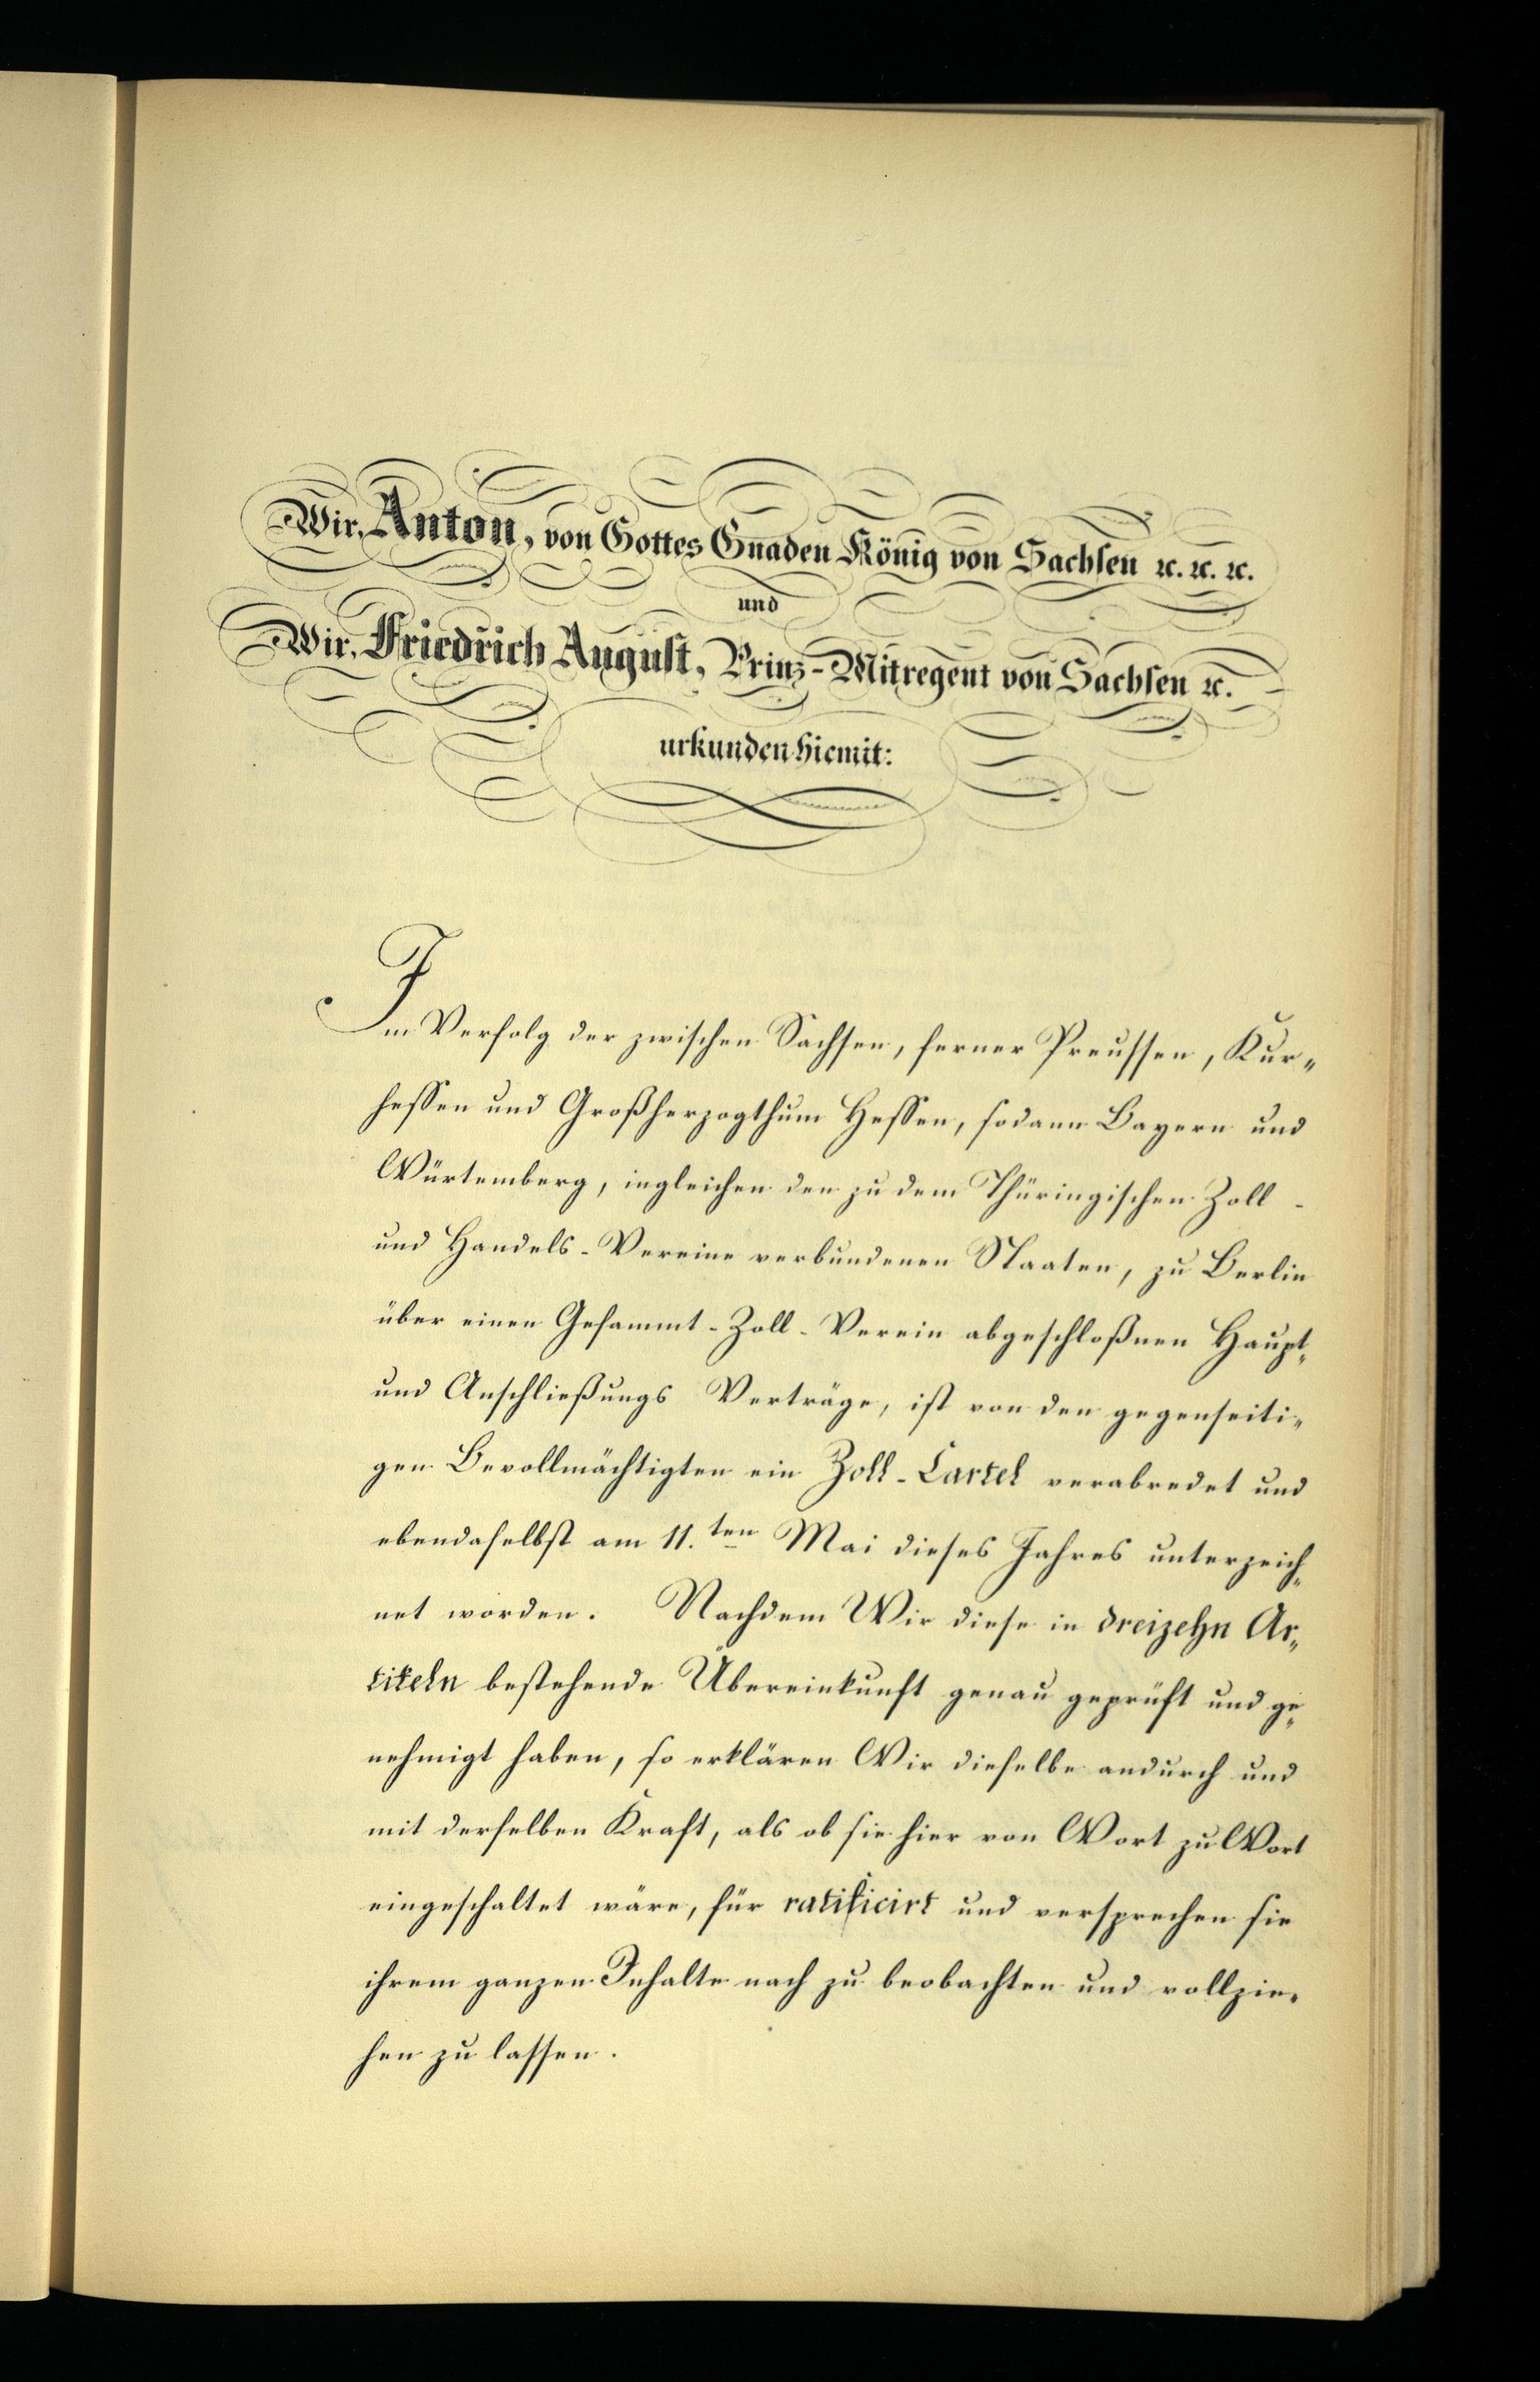 Wir, Anton, von Gottes Gnaden König von Sachsen ꝛc. ꝛc. ꝛc.
und
Wir, Friedrich August, Prinz-Mitregent von Sachsen ꝛc.
urkunden hiemit:
Im Verfolg der zwischen Sachsen, ferner Preussen, Kur-
hessen und Großherzogthum Hessen, sodann Bayern und
Würtemberg, ingleichen den zu dem Thüringischen Zoll-
und Handels-Vereine verbundenen Staaten, zu Berlin
über einen Gesammt-Zoll-Verein abgeschloßnen Haupt-
und Anschließungs Verträge, ist von den gegenseiti-
gen Bevollmächtigten ein Zoll-Cartel verabredet und
ebendaselbst am 11.ten Mai dieses Jahres unterzeich-
net worden. Nachdem Wir diese in dreizehn Ar-
tikeln bestehende Übereinkunft genau geprüft und ge-
nehmigt haben, so erklären Wir dieselbe andurch und
mit derselben Kraft, als ob sie hier von Wort zu Wort
eingeschaltet wäre, für ratificirt und versprechen sie
ihrem ganzen Inhalte nach zu beobachten und vollzie-
hen zu lassen.